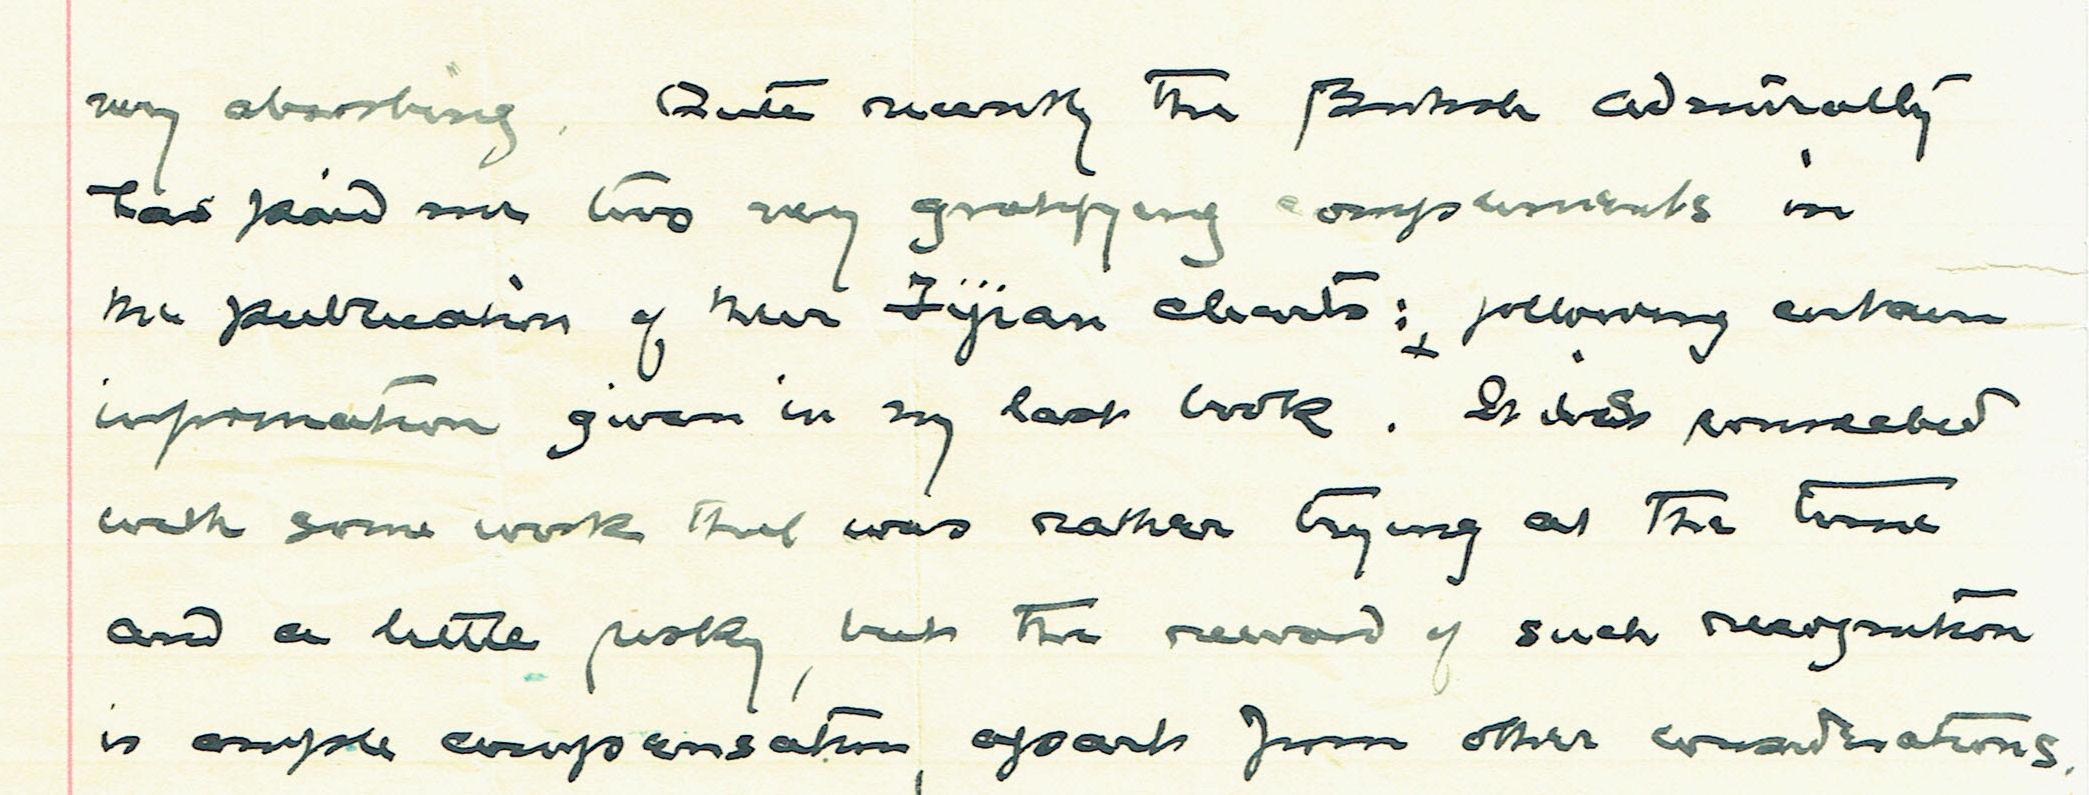 very absorbing. Quite recently the British Admiralty
has paid me two very gratifying compliments in
the publication of their Fijian charts; + following certain
information given in my last book. It was connected
with some work that was rather trying at the time
and a little risky, but the reward of such recognition
is ample compensation, apart from other considerations.